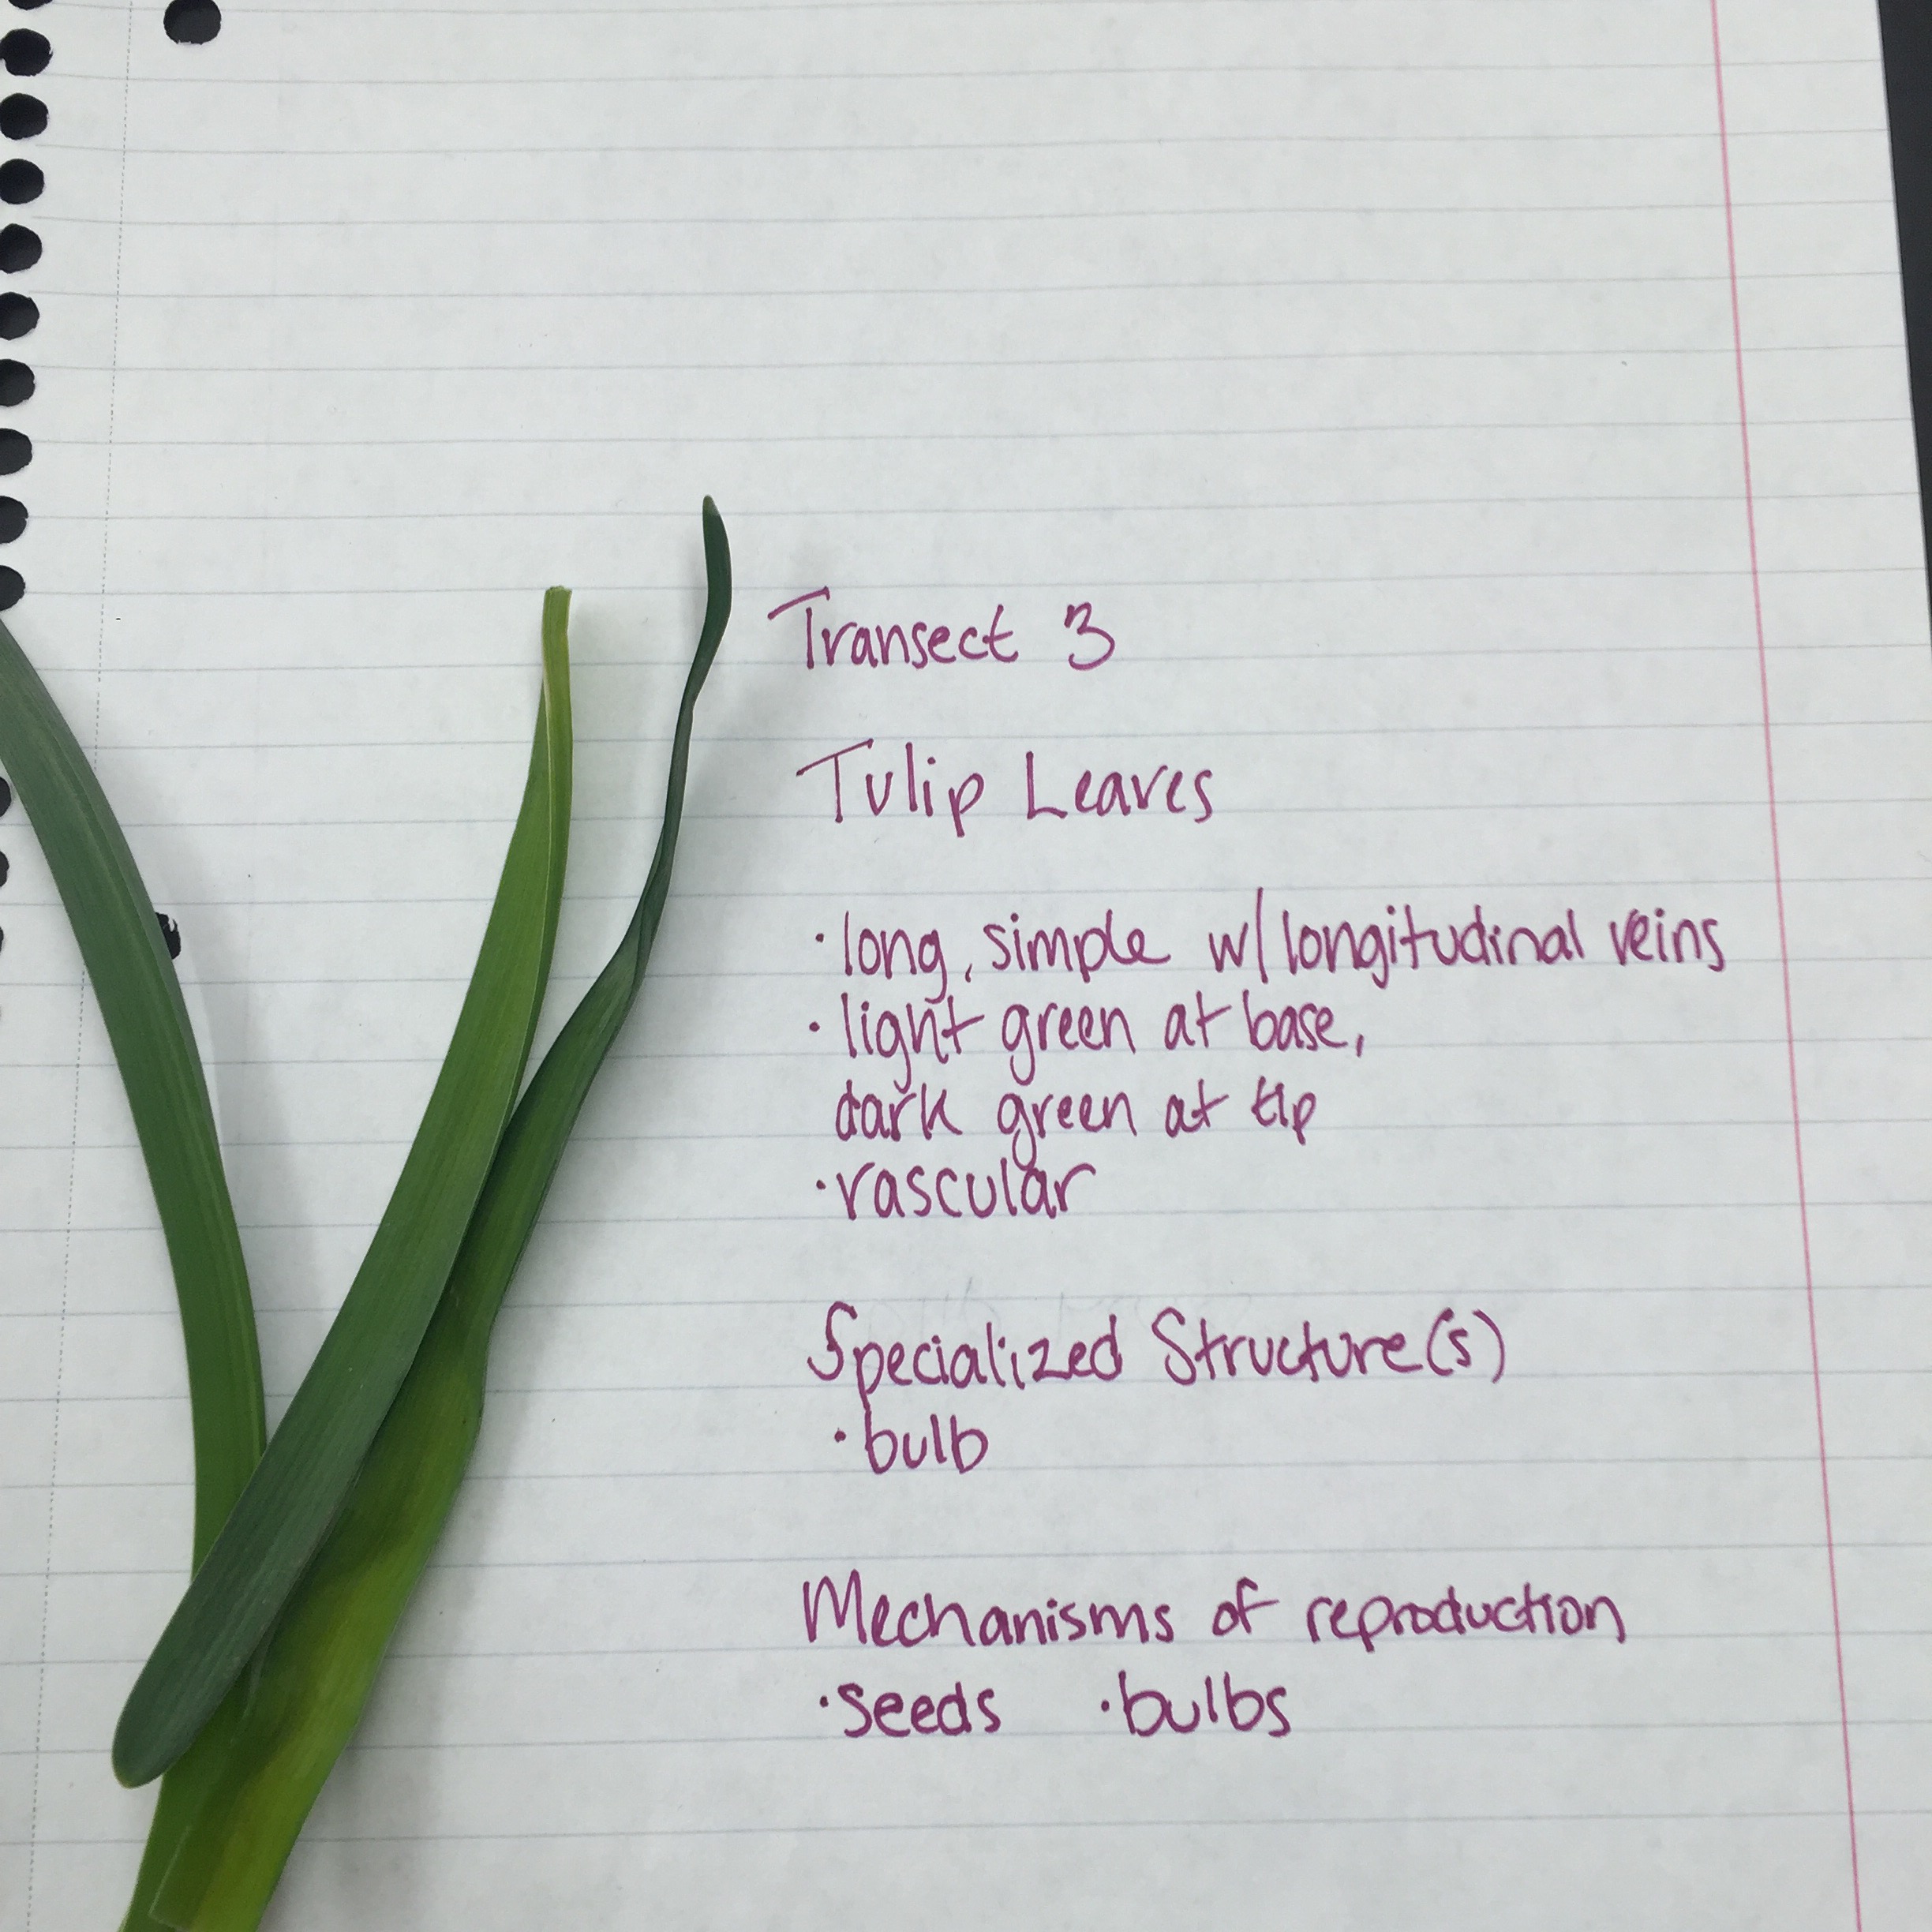 Transect 3
Tulip Leaves
· long, simple w/ longitudinal veins
· light green at base,
dark green at tip
· vascular
Specialized Structure(s)
· bulb
Mechanisms of reproduction
· seeds · bulbs